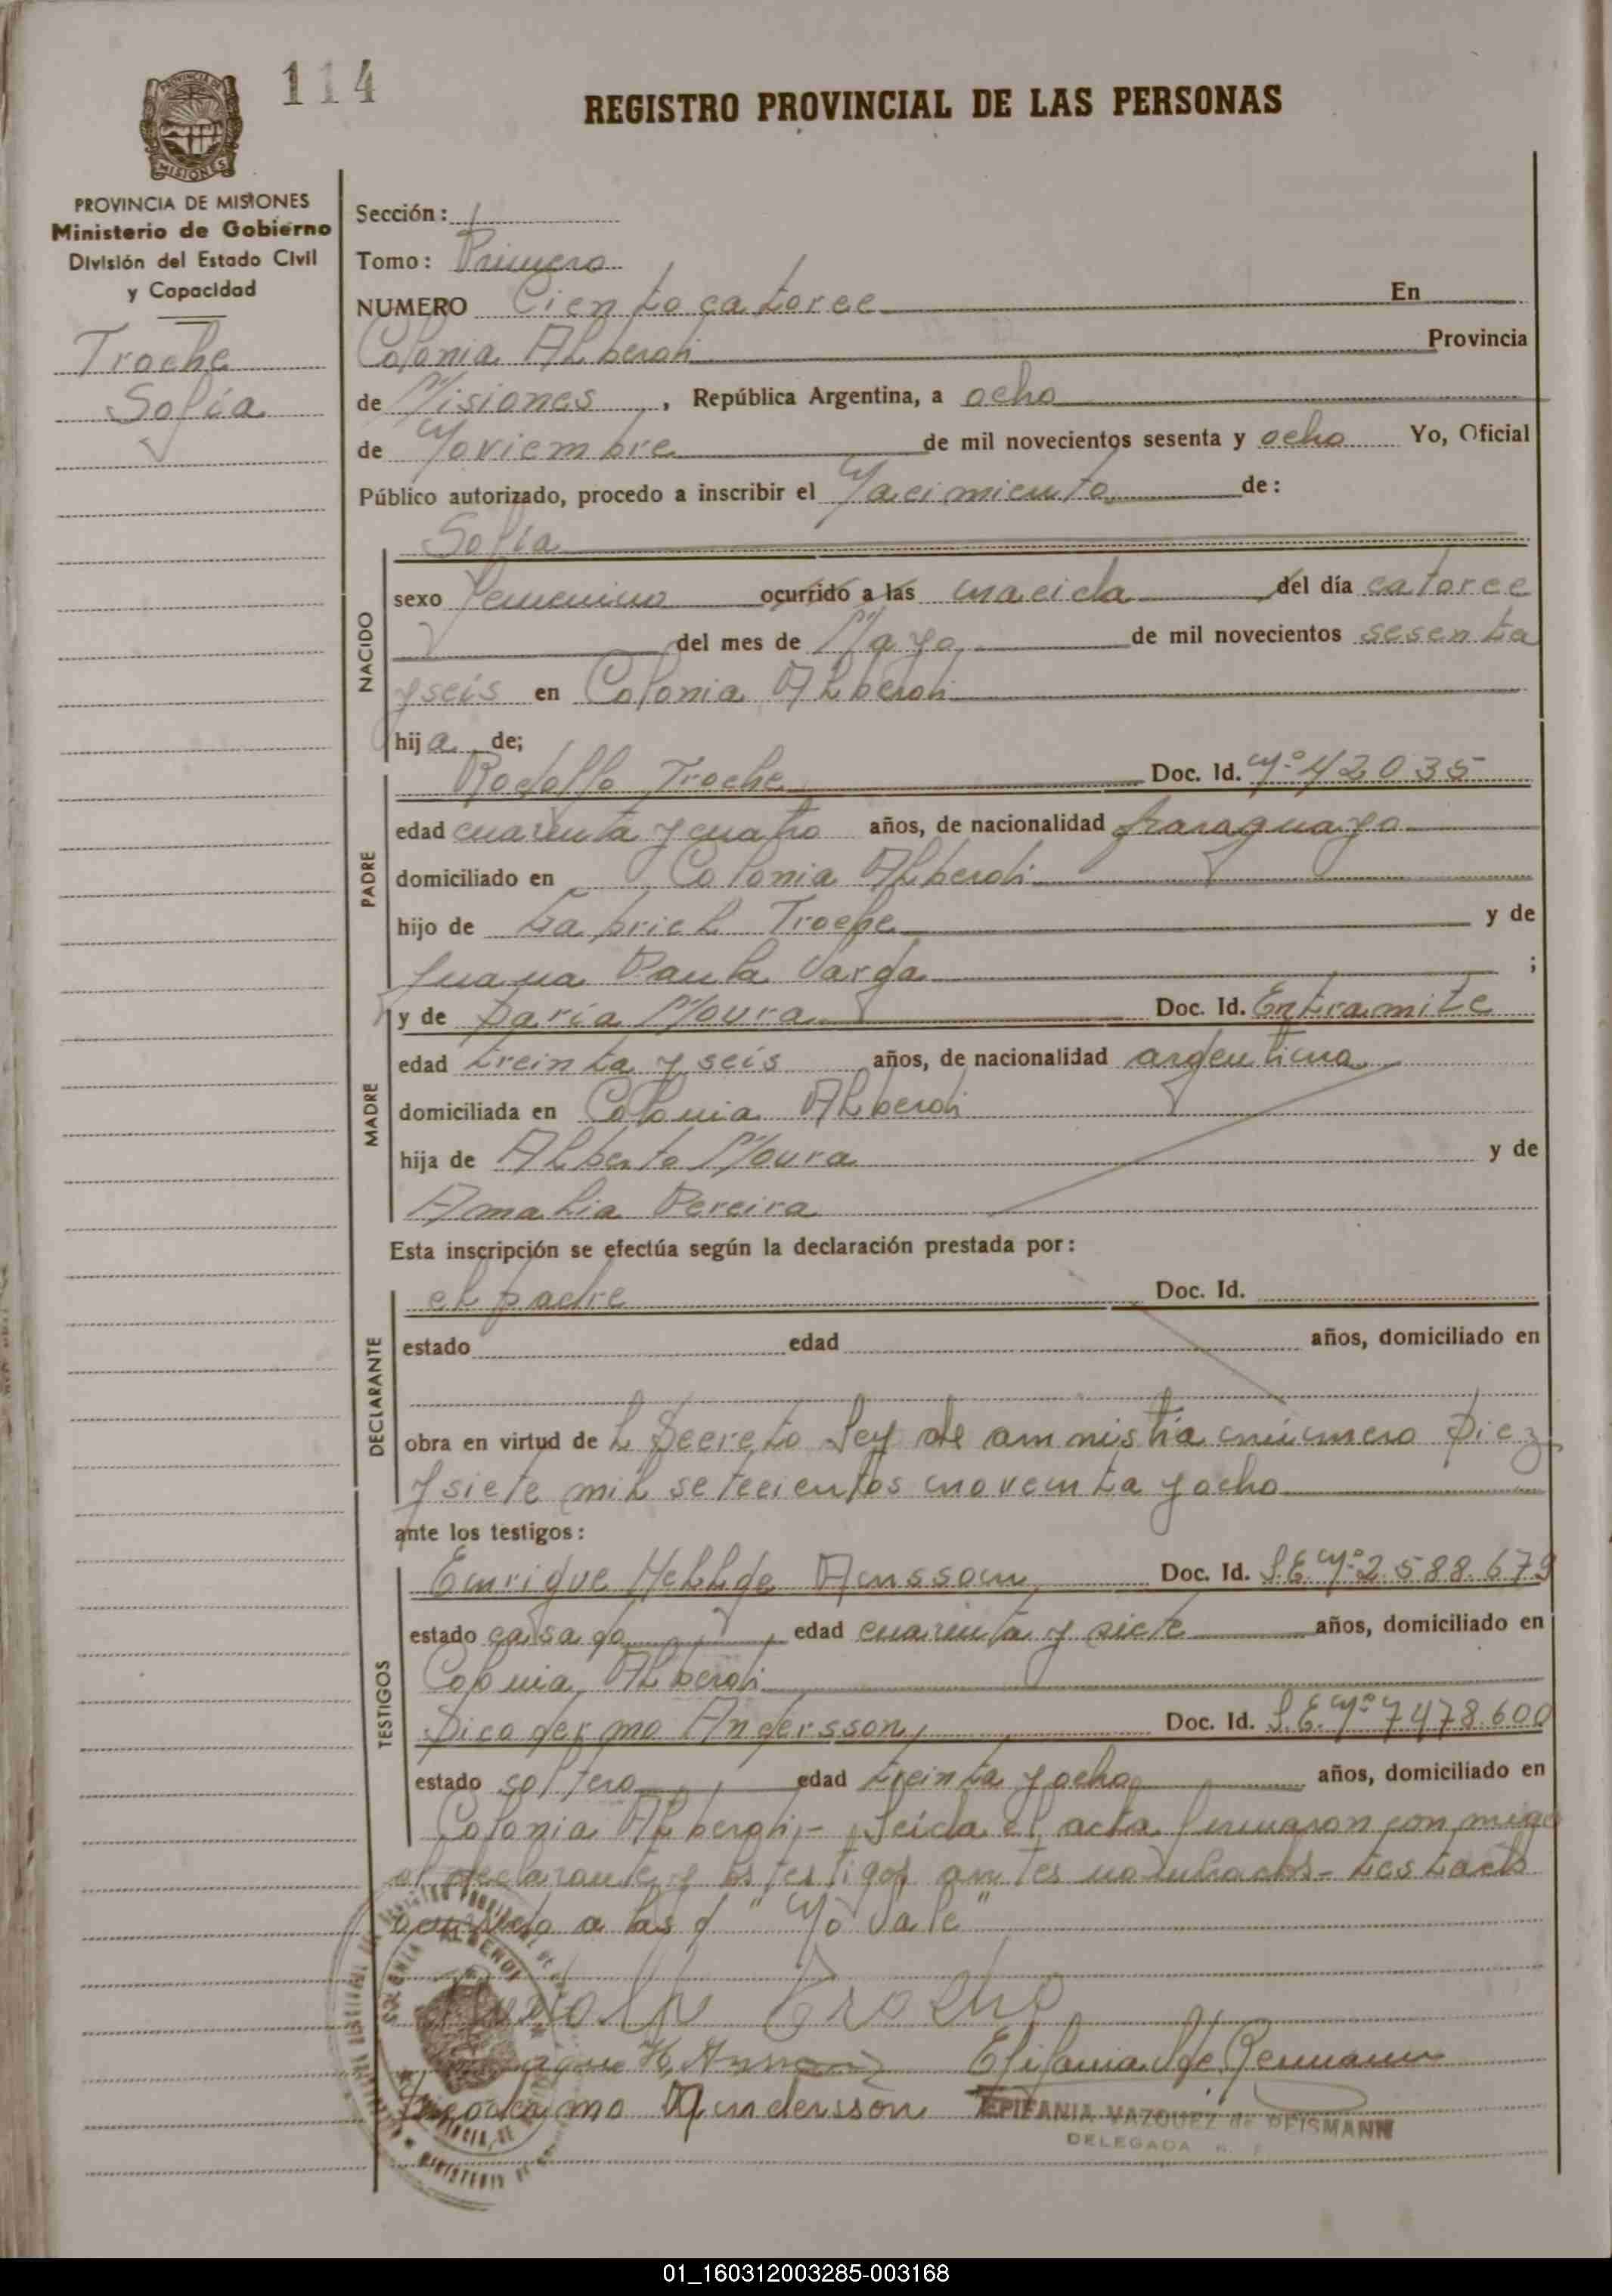 114
REGISTRO PROVINCIAL DE LAS PERSONAS
MISIONES
PROVINCIA DE MISIONES
Ministerio de Gobierno
División del Estado Civil
y Capacidad
Troche
Sofía
Sección:
Tomo: Primero
NUMERO Ciento catorce En
Colonia Alberdi Provincia
de Misiones, República Argentina, a ocho
de Noviembre de mil novecientos sesenta y ocho Yo, Oficial
Público autorizado, procedo a inscribir el Nacimiento de:
Sofía
NACIDO
sexo femenino ocurrido a las nacida del día catorce
del mes de Mayo de mil novecientos sesenta
y seis en Colonia Alberdi
hija de;
PADRE
Rodolfo Troche Doc. Id. Nº 42035
edad cuarenta y cuatro años, de nacionalidad paraguayo
domiciliado en Colonia Alberdi
hijo de Gabriel Troche y de
Juana Paula Varga ;
MADRE
y de Daría Moura Doc. Id. En tramite
edad treinta y seis años, de nacionalidad argentina
domiciliada en Colonia Alberdi
hija de Alberto Moura y de
Amalia Pereira
Esta inscripción se efectúa según la declaración prestada por:
DECLARANTE
el padre Doc. Id.
estado edad años, domiciliado en
obra en virtud del Decreto Ley de amnistía número Diez
y siete mil setecientos noventa y ocho
ante los testigos:
TESTIGOS
Enrique Hellge Doc. Id. L.E. Nº 2.588.679
estado casado, edad cuarenta y siete años, domiciliado en
Colonia Alberdi
Dicodermo Andersson, Doc. Id. L.E. Nº 7478.600
estado soltero, edad treinta y ocho años, domiciliado en
Colonia Alberdi,- Leída el acta firmaron conmigo
el declarante y los testigos antes nombrados- testado
ocurrido a las d "No Vale"
Rodolfo Troche
EPIFANIA VAZQUEZ de REISMANN
DELEGADA
01_160312003285-003168